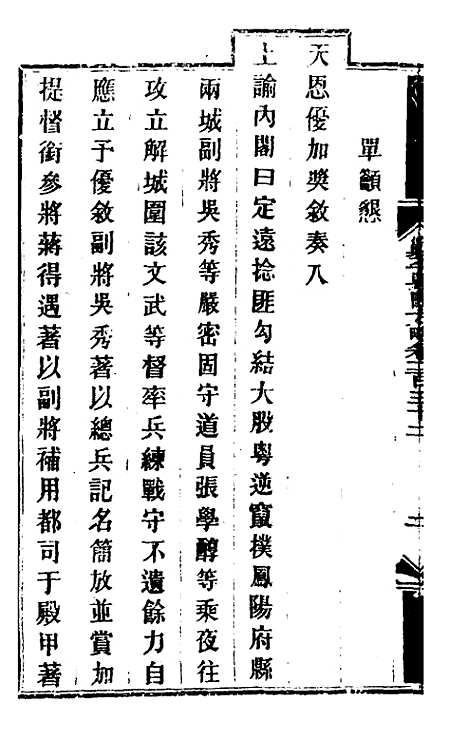 單籲懇
天恩優加獎敘奏入
上諭內閣曰定遠捻匪勾結大股粵逆竄撲鳳陽府縣
兩城副將吳秀等嚴密固守道員張學醇等乘夜往
攻立解城圍該文武等督率兵練戰守不遺餘力自
應立予優敘副將吳秀著以總兵記名簡放並賞加
提督銜參將蔣得遇著以副將補用都司于殿甲著